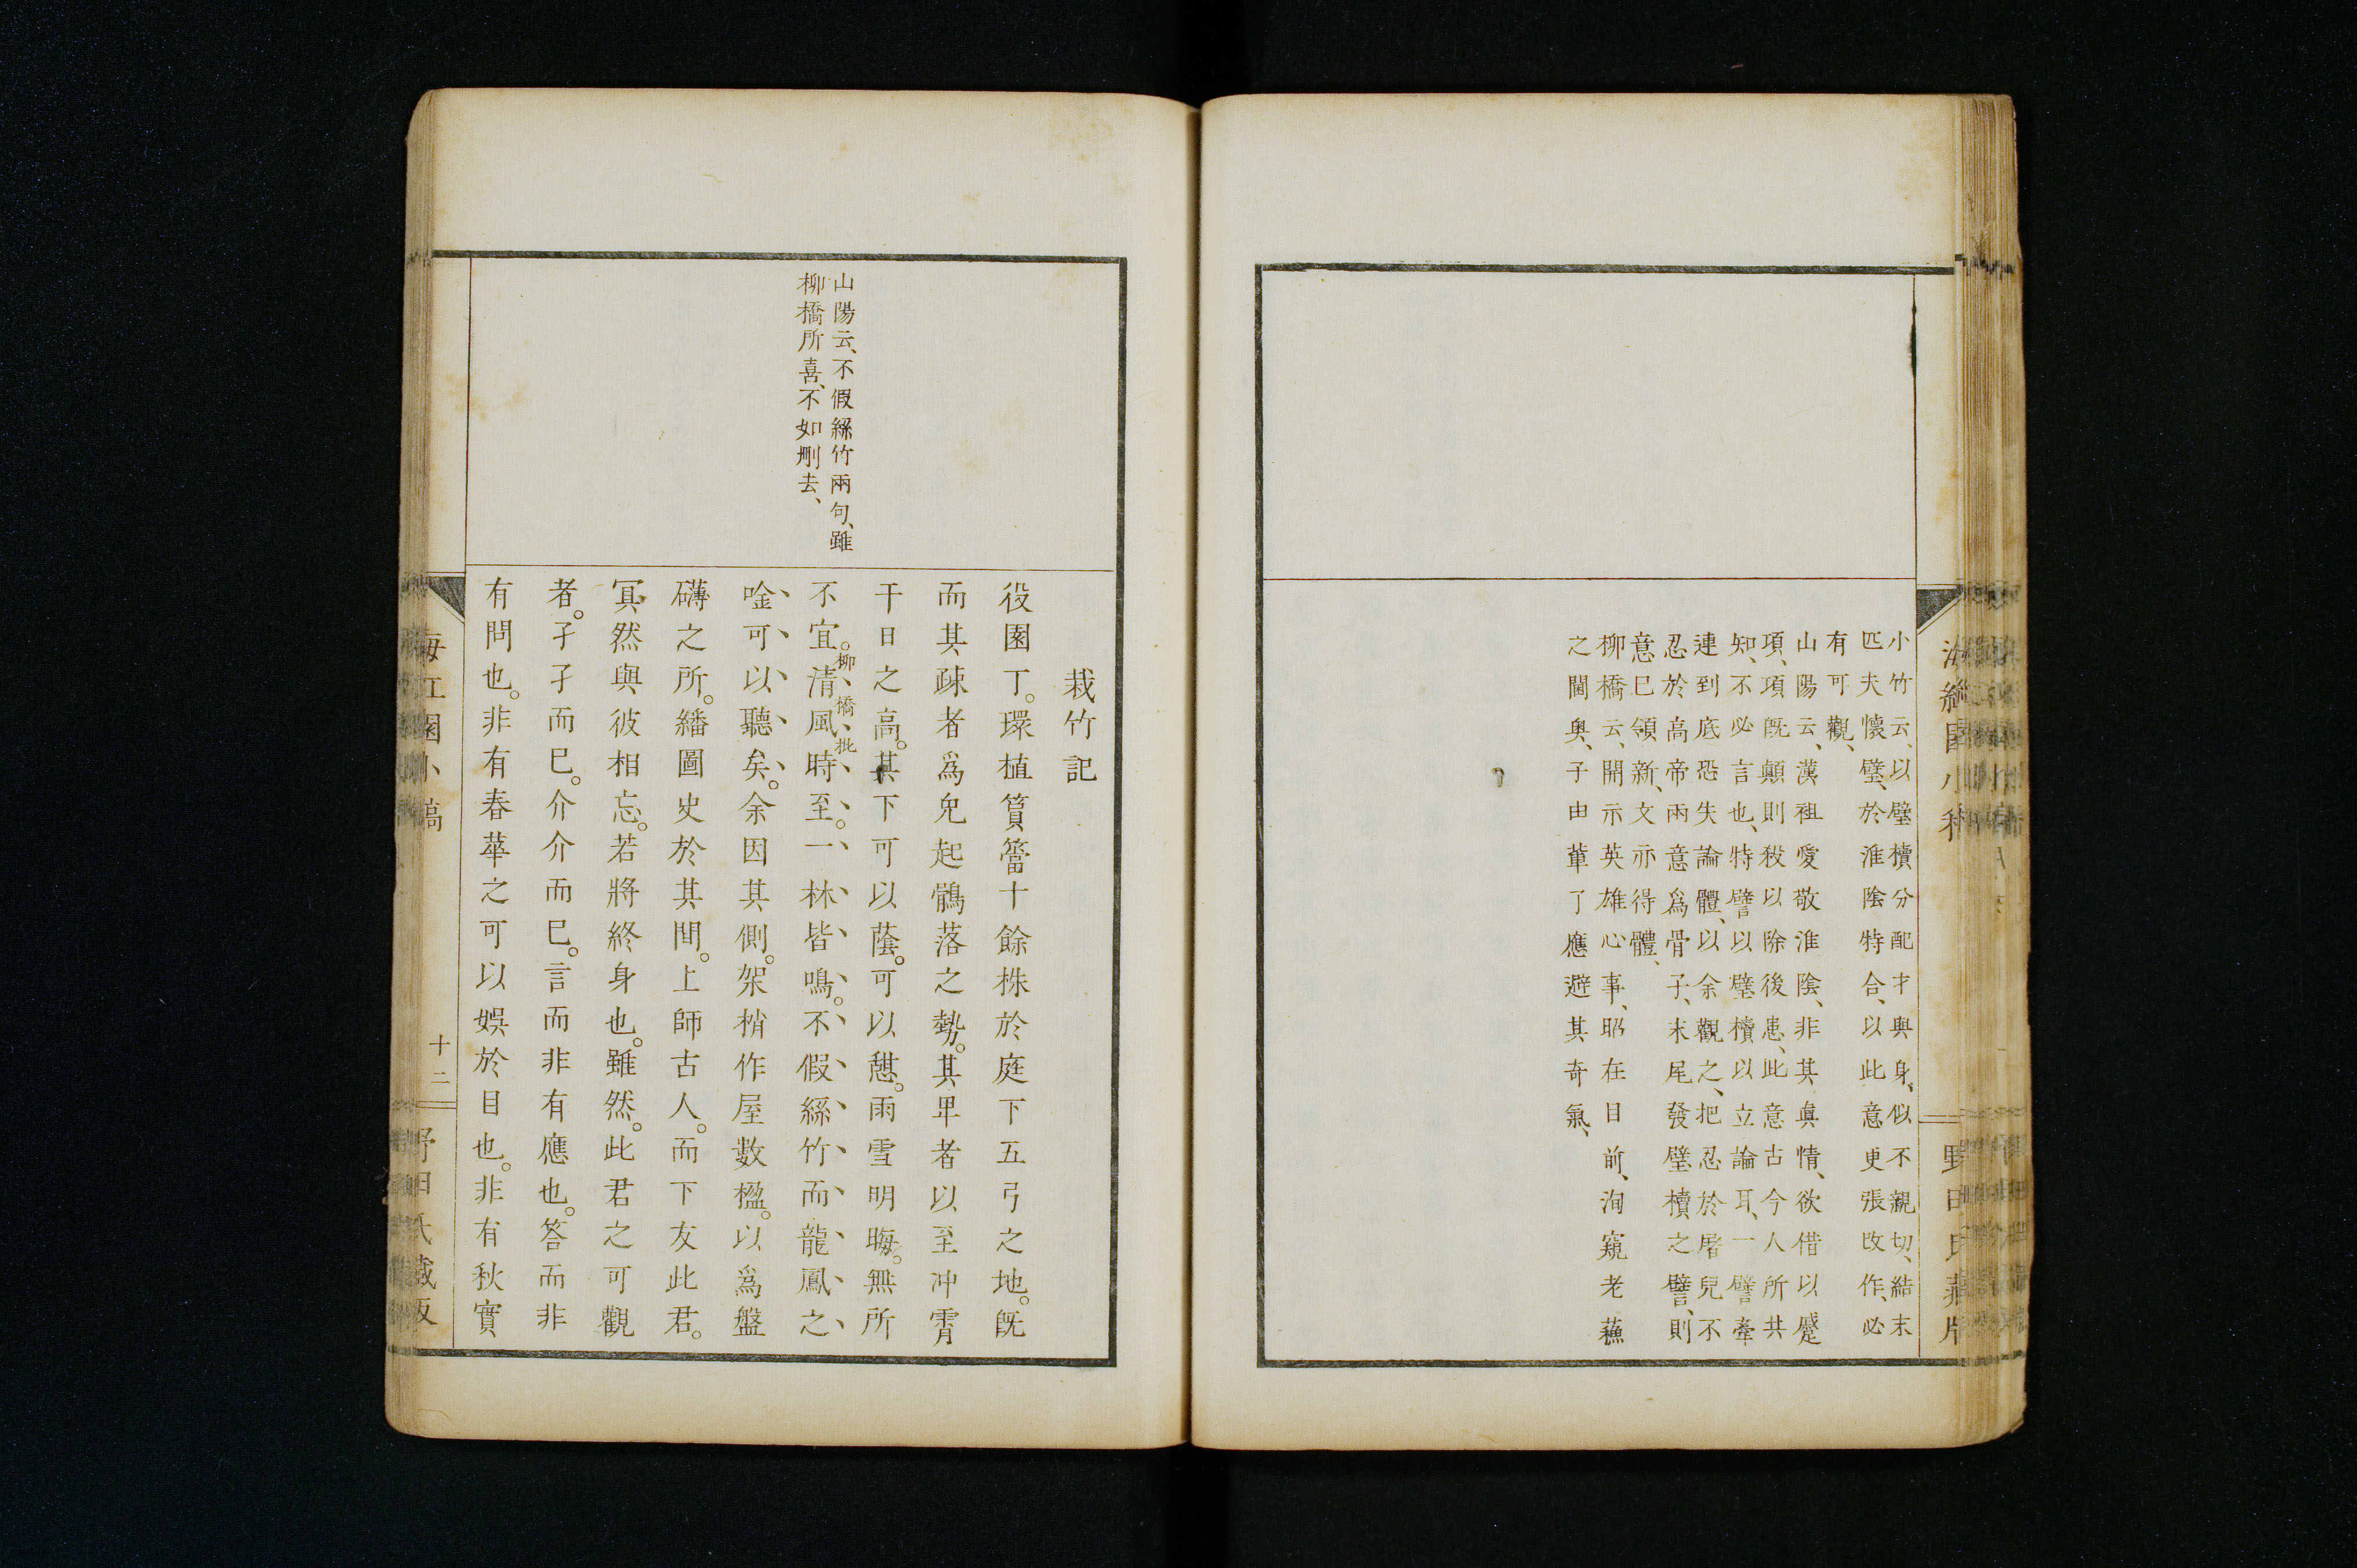 小竹云、以璧櫝分配才與身、似不親切、結末
匹夫懷璧、於淮陰特合、以此意更張改作、必
有可觀、
山陽云、漢祖愛敬淮陰、非其眞情、欲借以蹙
項、項既顛則殺以除後患、此意古今人所共
知、不必言也、特譬以璧櫝以立論耳、一譬牽
連到底恐失論體、以余觀之、把忍於屠兒不
忍於高帝兩意爲骨子、末尾發璧櫝之譬、則
意已領新、文亦得體、
柳橋云、開示英雄心事、昭在目前、洵窺老蘓
之閫奧、子由輩了應避其奇氣、
栽竹記
役園丁。環植篔簹十餘株於庭下五弓之地。既
而其疎者爲兔起鶻落之勢。其卑者以至冲霄
干日之高。其下可以蔭。可以憇。雨雪明晦。無所
不宜。清風時至。一林皆鳴。不假絲竹而龍鳳之
唫可以聽矣。余因其側。架梢作屋數楹。以爲盤
礴之所。繙圖史於其間。上師古人。而下友此君。
冥然與彼相忘。若將終身也。雖然。此君之可觀
者。孑孑而已。介介而已。言而非有應也。答而非
有問也。非有春華之可以娯於目也。非有秋實
柳橋批
山陽云、不假絲竹兩句、雖
柳橋所喜、不如刪去、
十二